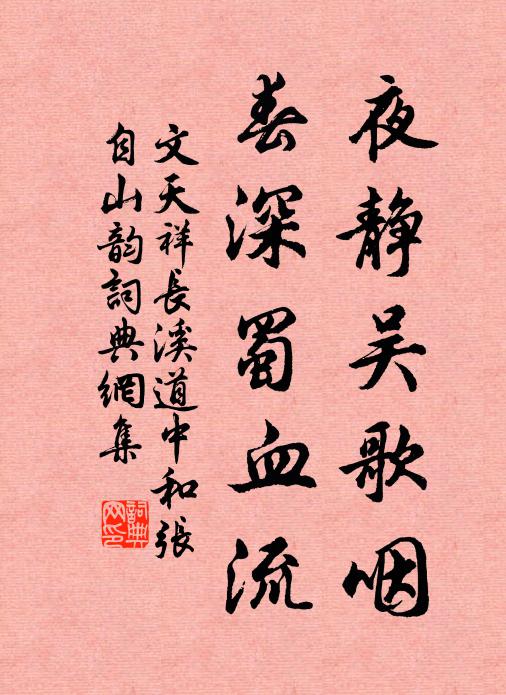 夜靜吴歌咽
春深蜀血流
文天祥長溪道中和張
自山韵詞典網集
詞典
网印